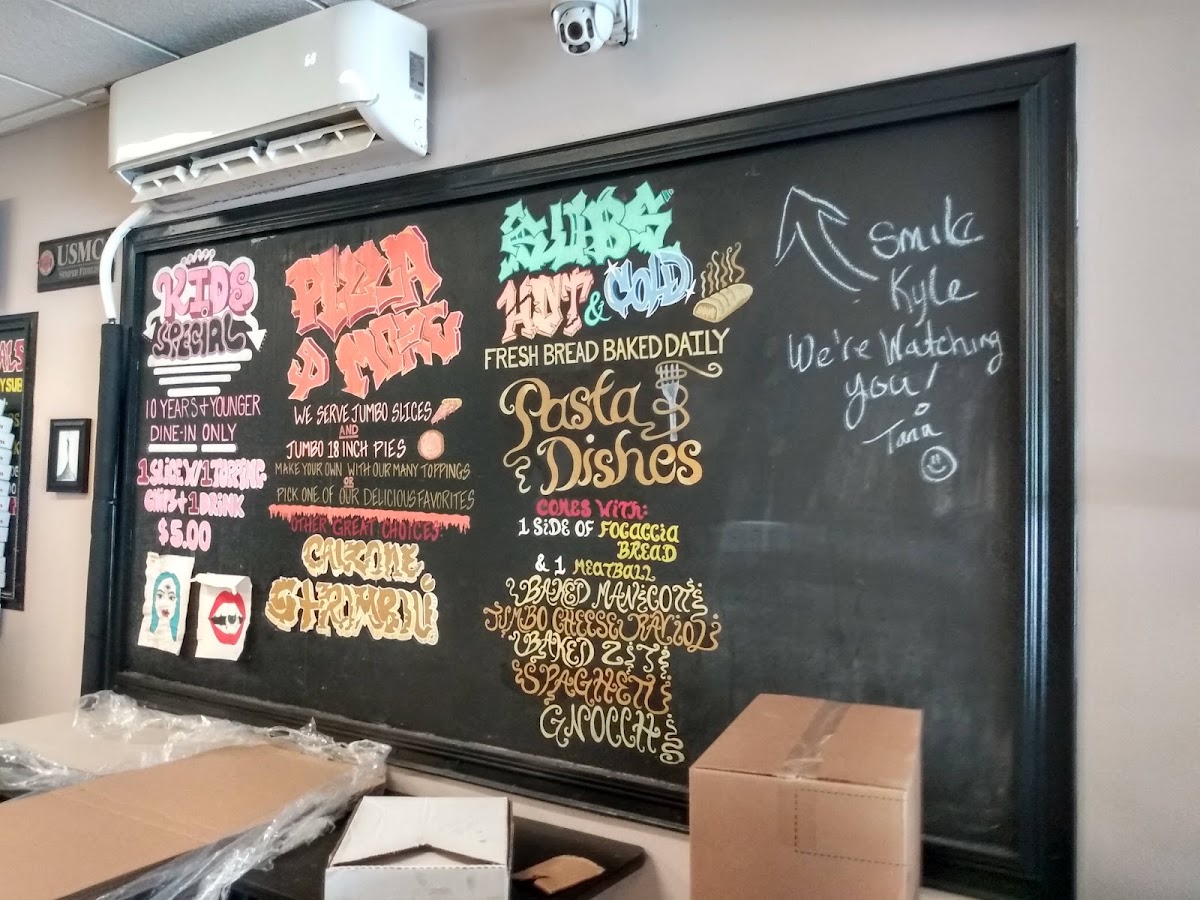 USMC
SEMPER FIDELIS
KIDS
SPECIAL
10 YEARS + YOUNGER
DINE-IN ONLY
1 SLICE W/ 1 TOPPING
CHIPS + 1 DRINK
$5.00
PIZZA
& MORE
WE SERVE JUMBO SLICES
AND
JUMBO 18 INCH PIES
MAKE YOUR OWN WITH OUR MANY TOPPINGS
OR
PICK ONE OF OUR DELICIOUS FAVORITES
OTHER GREAT CHOICES:
CALZONE
STROMBOLI
SUBS
HOT & COLD
FRESH BREAD BAKED DAILY
Pasta
Dishes
COMES WITH:
1 SIDE OF FOCACCIA
BREAD
& 1 MEATBALL
BAKED MANICOTTI
JUMBO CHEESE RAVIOLI
BAKED ZITI
SPAGHETTI
GNOCCHI
Smile
Kyle
We're Watching
you!
Tania
ALS
SUB